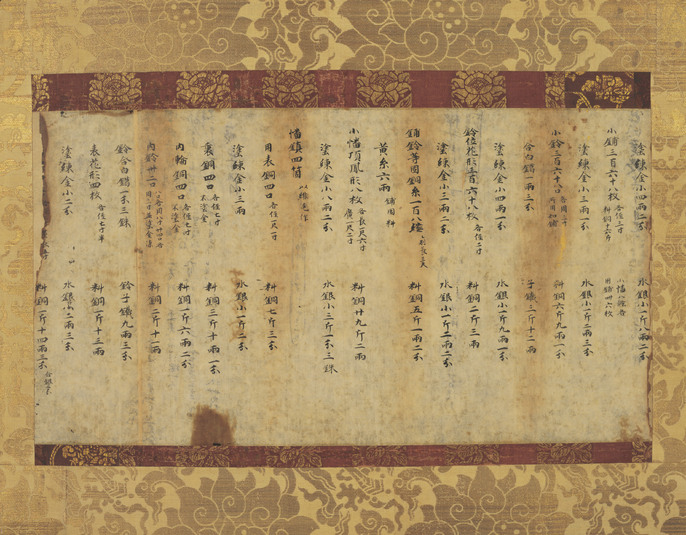 塗練金小四兩二分 水銀小一斤八兩二分
小鋪三百六十八枚 各徑三寸 料銅十六斤
塗練金小三兩一分 水銀小二兩三分
小鈴三百六十口 料銅六斤九兩一分
合白鑞一兩三分 鈴子鐵三斤十二兩
塗練金小四兩一分 水銀小一斤九兩一分
鈴位花形三百六十八枚 各徑二寸 料銅二斤三兩一分
塗練金小三兩二分 水銀小一斤一兩二分
鋪鈴等固銅糸一百八十 料銅五斤一兩二分
黃糸六兩 鋪固料
小幡頂鳳形八枚 各長一尺六寸 廣一尺二寸 料銅廿九斤二兩
塗練金小八兩二分 水銀小三斤一兩三分三銖
幡鎮四箇
周表銅四口 各徑一尺一寸 料銅七斤三分
塗練金小三兩 水銀小一斤二分
裏銅四口 各徑七寸 不塗金 料銅三斤十兩一分
內輪銅四口 各徑七寸 不塗金 料銅一斤六兩二分
內鈴廿二口 料銅二斤十一兩
鈴合白鑞一分三銖 鈴子鐵九兩三分
表花形四枚 各徑七寸半 料銅一斤十三兩
塗練金小二分 水銀小二兩三分
料銅一斤十四兩三分